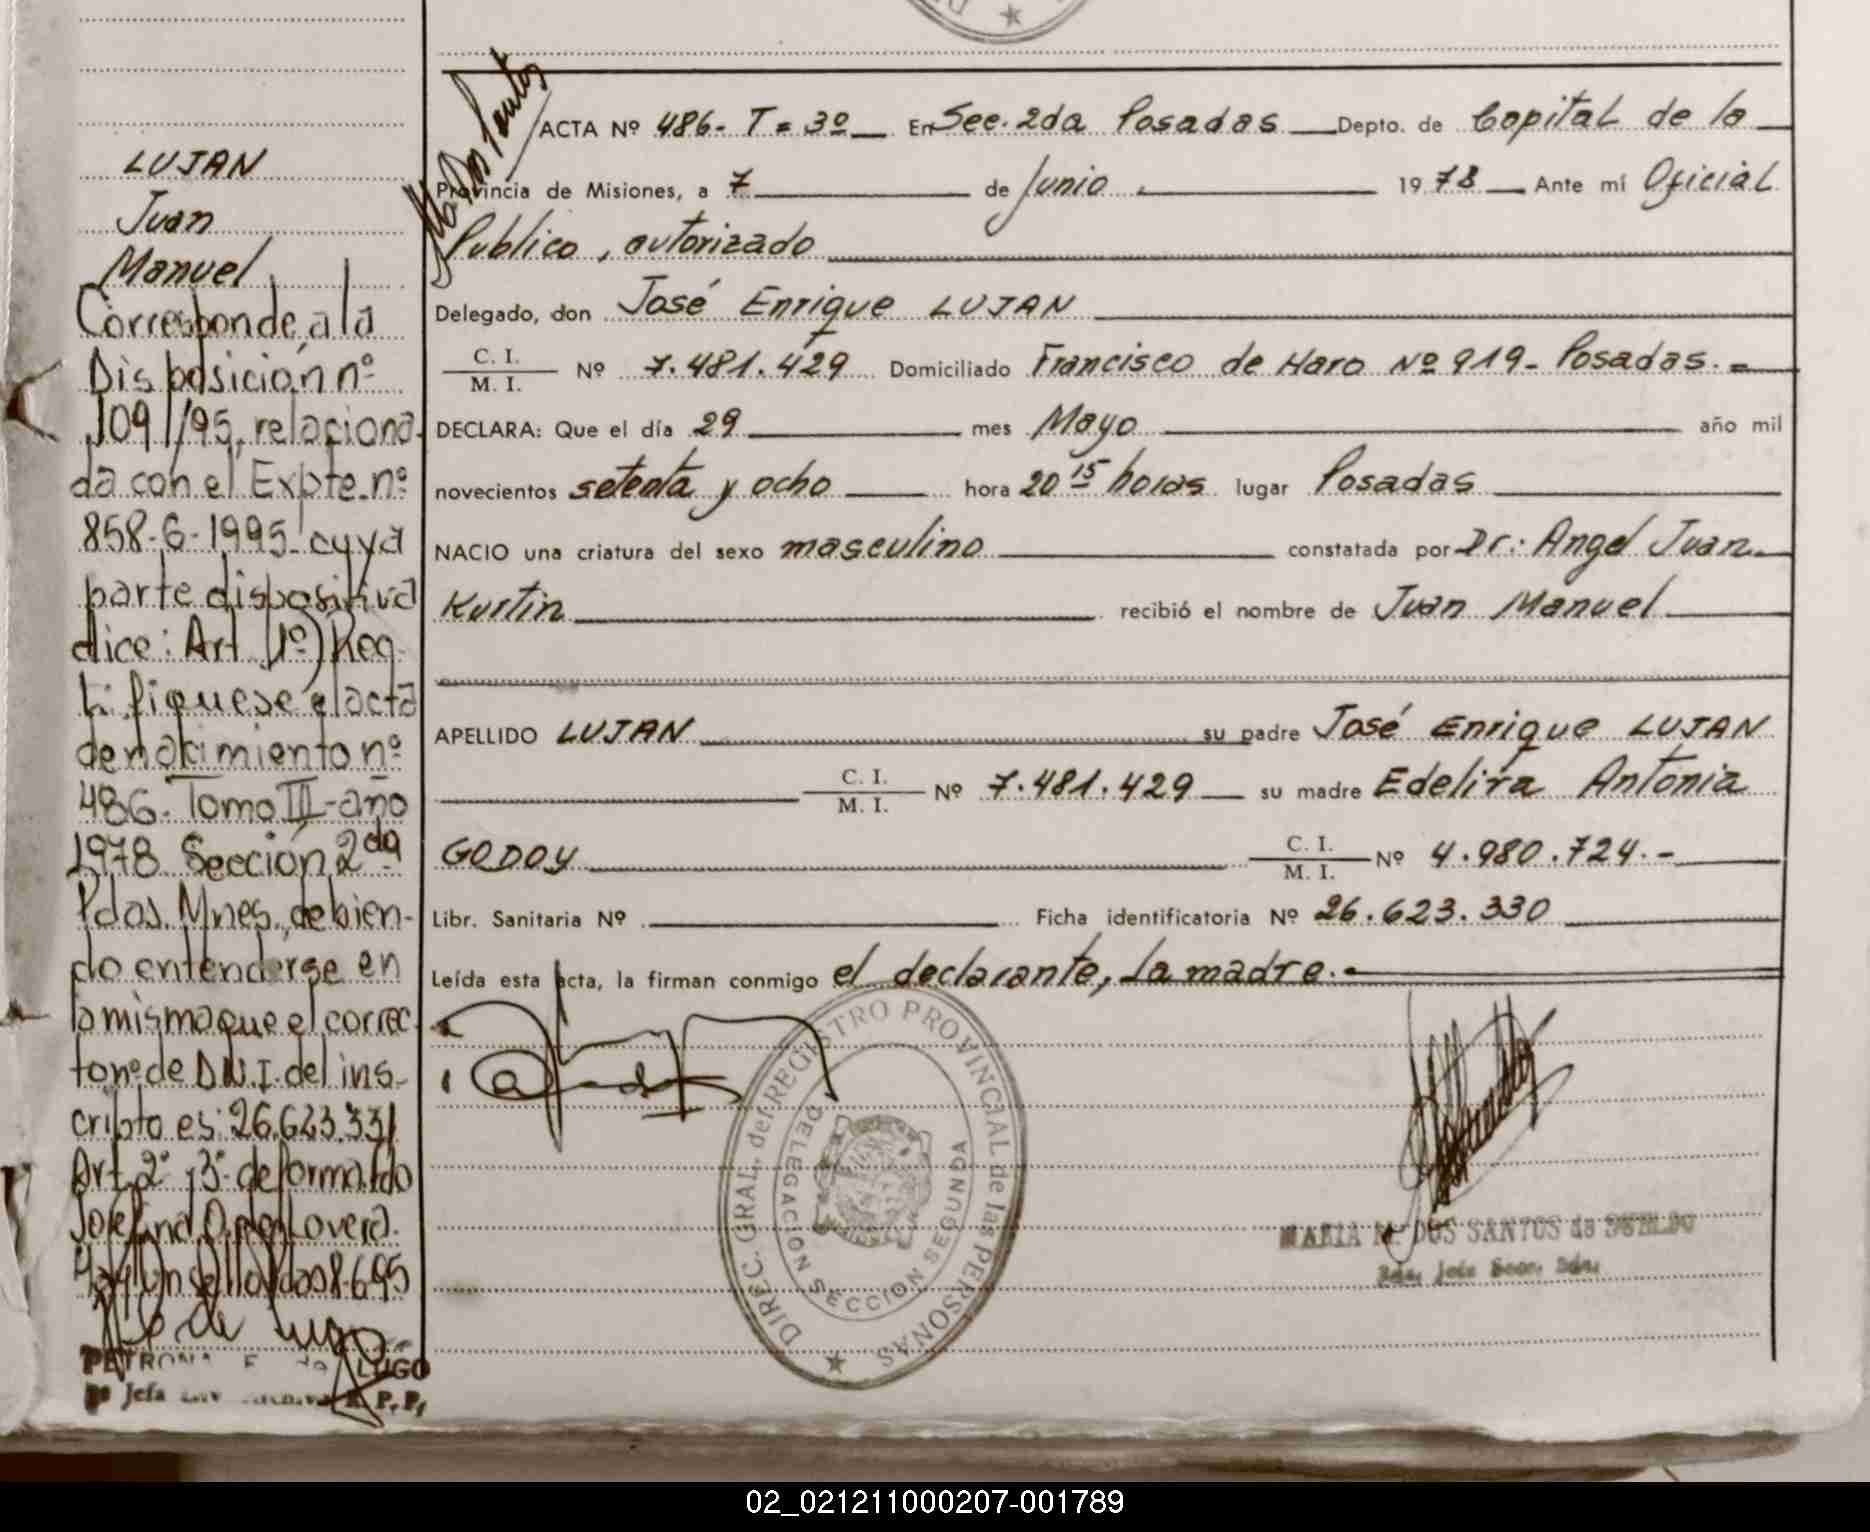 LUJAN
Juan
Manuel
Corresponde a la
Disposición nº
1091/95, relaciona
da con el Expte. nº
858-6-1995 cuya
parte dispositiva
dice: Art (1º) Rec
tifiquese el acta
de nacimiento nº
486. Tomo III-año
1978 Sección 2da
Pdas. Mnes, debien-
do entenderse en
la misma que el correc
to nº de D.N.I. del ins-
cripto es: 26.623.331
Art. 2º y 3º de forma. fdo
Josefina Lovera.
Hay un sello Pdas 8-6-95
PETRONA E. de LUGO
Jefa R. P. P.
M. Dos Santos
ACTA Nº 486- T = 3º En Sec. 2da Posadas Depto. de Capital de la
Provincia de Misiones, a 7 de Junio 1978 Ante mí Oficial
Publico, autorizado
Delegado, don José Enrique LUJAN
C. I.
M. I. Nº 7.481.429 Domiciliado Francisco de Haro Nº 919- Posadas.=
DECLARA: Que el día 29 mes Mayo año mil
novecientos setenta y ocho hora 20 15 horas lugar Posadas
NACIO una criatura del sexo masculino constatada por Dr.: Angel Juan
Kurtin recibió el nombre de Juan Manuel
APELLIDO LUJAN su padre José Enrique LUJAN
C. I.
M. I. Nº 7.481.429 su madre Edelira Antonia
GODOY C. I.
M. I. Nº 4.980.724.-
Libr. Sanitaria Nº Ficha identificatoria Nº 26.623.330
Leída esta acta, la firman conmigo el declarante, la madre.-
DIREC. GRAL. del REGISTRO PROVINCIAL de las PERSONAS
DELEGACION SECCION SEGUNDA
MARIA M. DOS SANTOS de
02_021211000207-001789